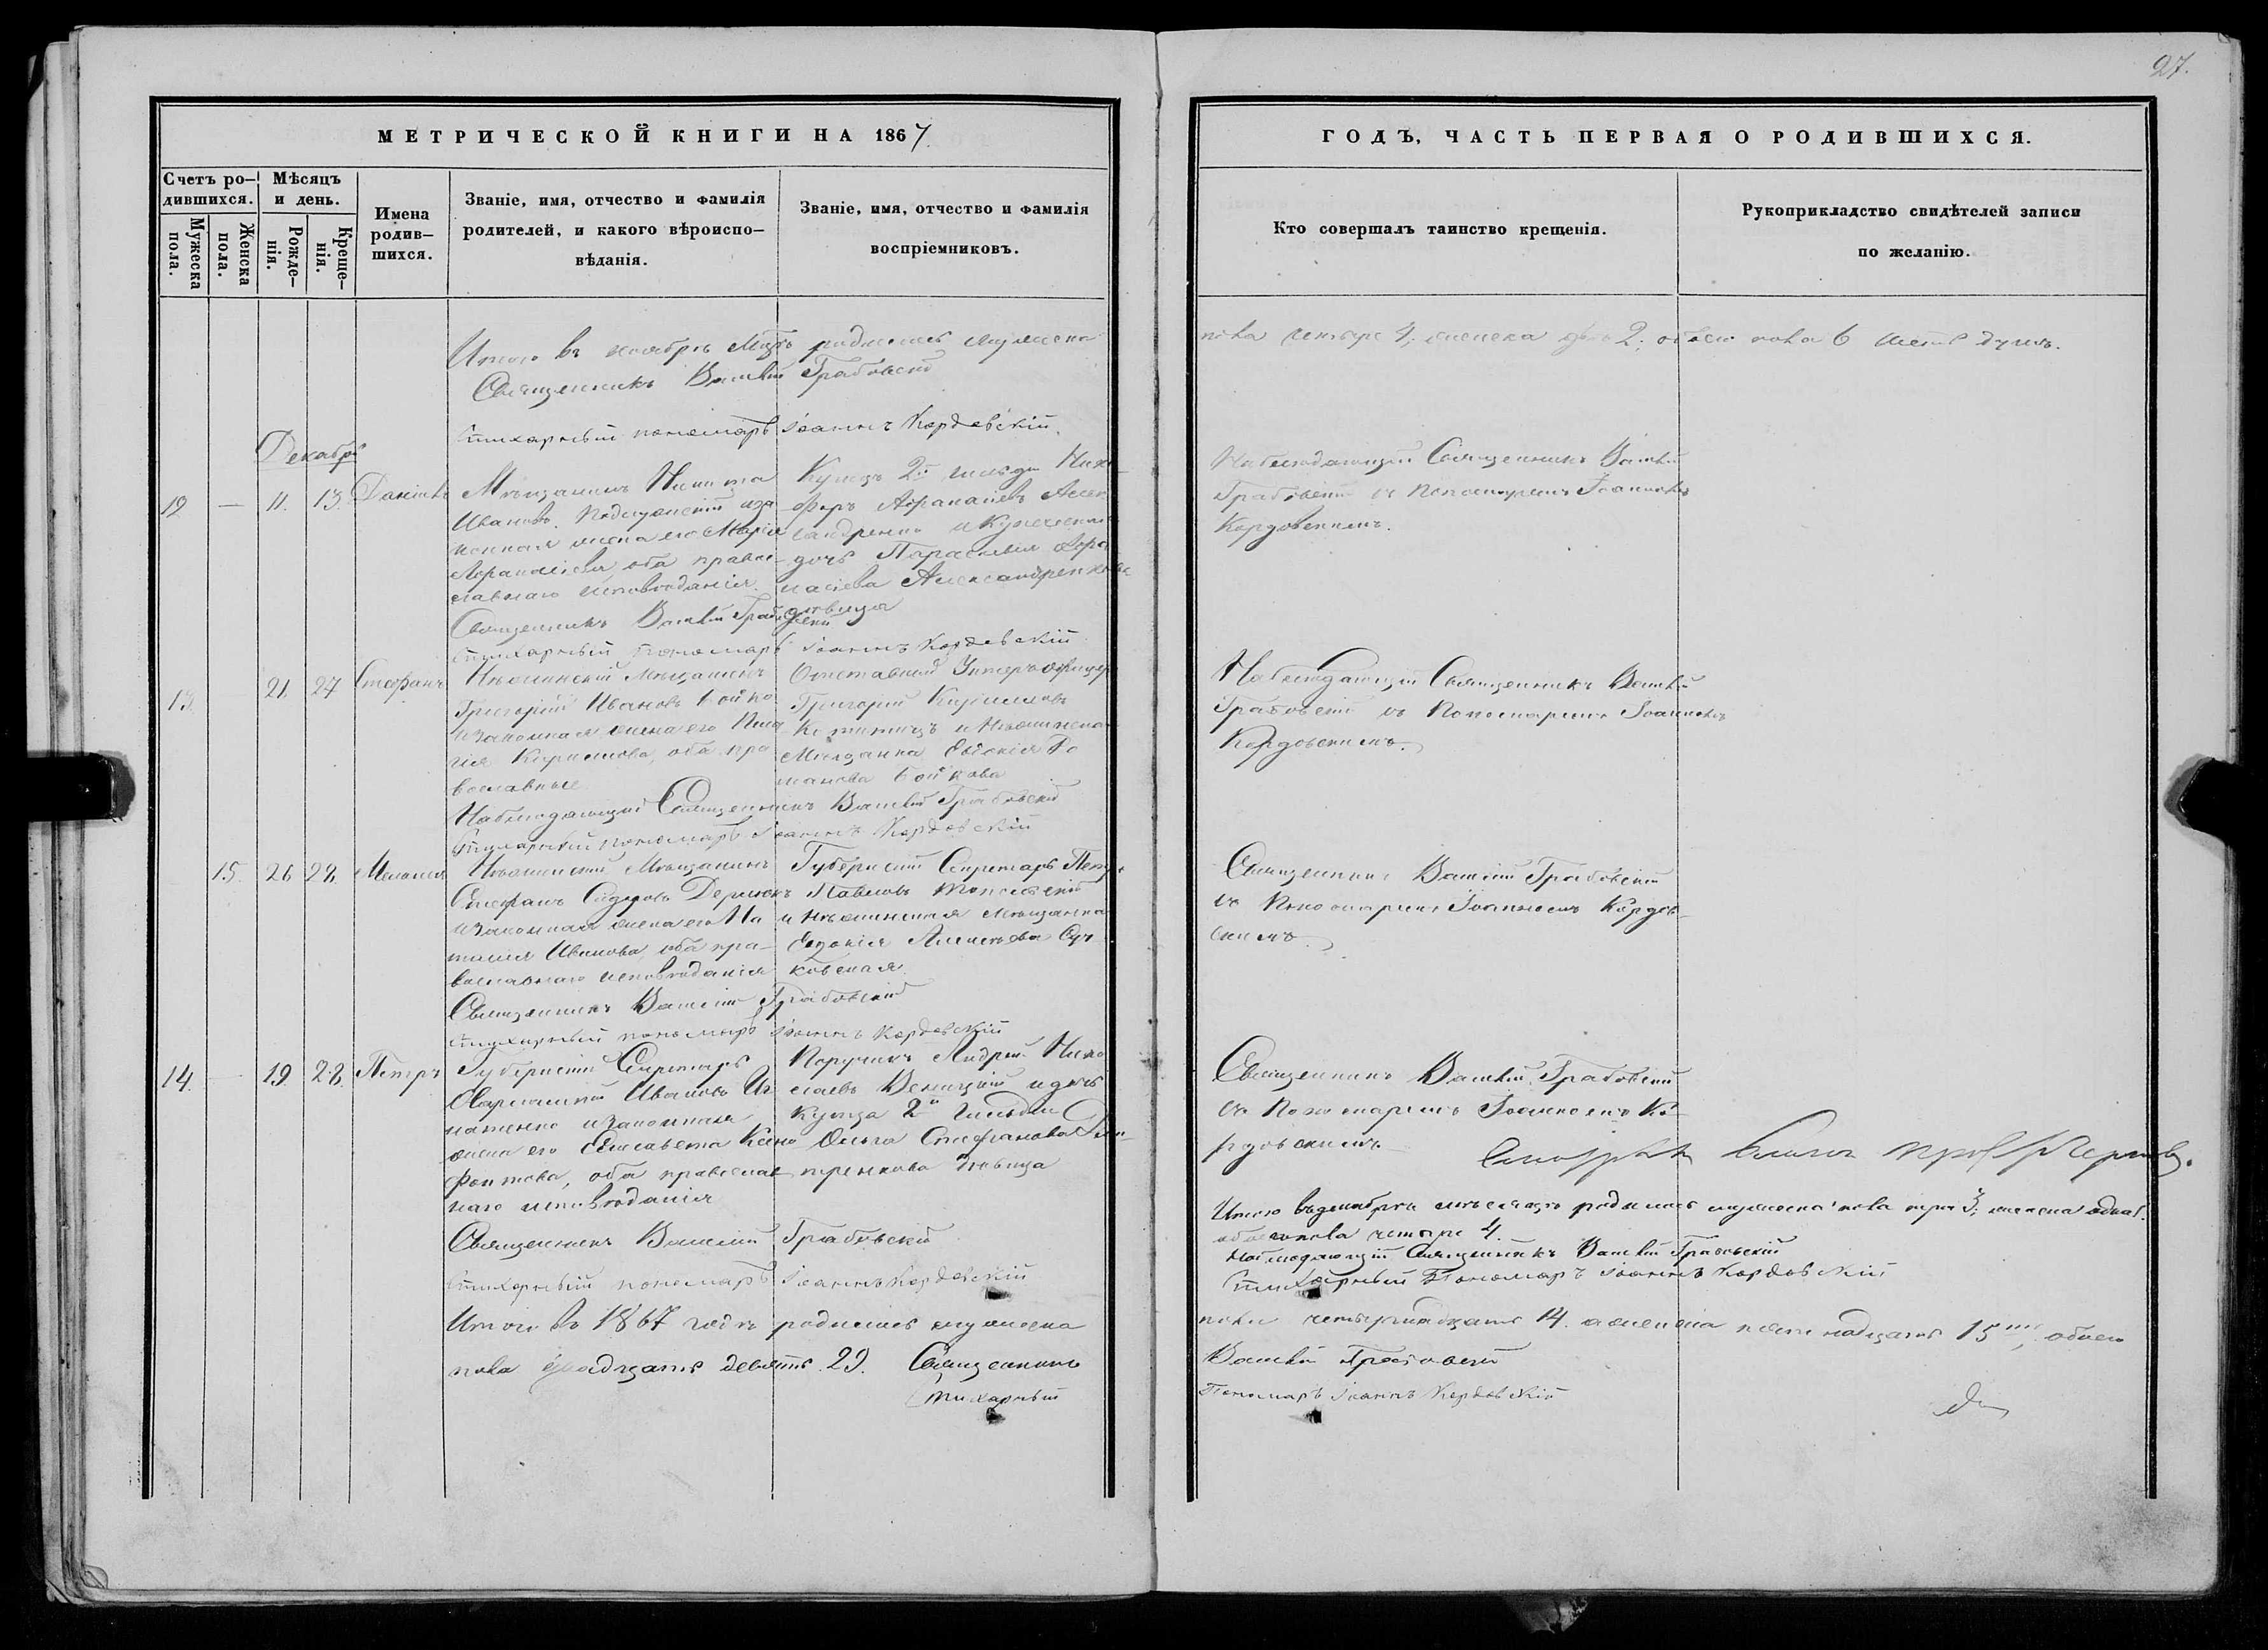 27.
МЕТРИЧЕСКОЙ КНИГИ НА 1867.
Счетъ ро-
дившихся.
Мужеска
пола.
Женска
пола.
Мѣсяцъ
и день.
Рожде-
нія.
Креще-
нія.
Имена
родив-
шихся.
Званіе, имя, отчество и фамилія
родителей, и какого вѣроиспо-
вѣданія.
Званіе, имя, отчество и фамилія
воспріемниковъ.
ГОДЪ, ЧАСТЬ ПЕРВАЯ О РОДИВШИХСЯ.
Кто совершалъ таинство крещенія.
Рукоприкладство свидѣтелей записи
по желанію.
Итого въ ноябрѣ родилось мужеска
пола четыре 4, женска два 2, обоего пола 6 шесть душъ.
Священникъ Василій Грабовскій
Стихарный пономарь Іоаннъ Кордовскій.
Декабрь
12 — 11. 13. Даніилъ
Мѣщанинъ Никита
Иванов. изъ
конная жена его Марія
Аѳанасіева, оба право-
славнаго исповѣданія.
Купецъ 2й гильдіи Ники-
форъ Аѳанасіевъ Алек-
сандренко и купеческая
дочь Параскева Аѳа-
насіева Александренкова
дѣвица
Наблюдающій Священникъ Василій
Грабовскій съ Пономаремъ Іоанномъ
Кордовскимъ.
Священникъ Василій Грабовскій
Стихарный пономарь Іоаннъ Кордовскій
13. 21. 27 Стефанъ
Нѣжинскій Мѣщанинъ
Григорій Ивановъ Бойко
и законная жена его
Кириллова, оба пра
вославные
Отставной Унтеръ-офицеръ
Григорій Кирилловъ
и Нѣжинска
Мѣщанка Евдокія Ро
манова Бойкова
Наблюдающій Священникъ Василій
Грабовскій съ Пономаремъ Іоанномъ
Кордовскимъ.
Наблюдающій Священникъ Василій Грабовскій
Стихарный пономарь Іоаннъ Кордовскій
15. 26 28. Меланія
Нѣжинскій Мѣщанинъ
Стефанъ
и законная жена его На
талія Иванова, оба пра-
вославнаго исповѣданія
Губернскій Секретарь Петръ
Павловъ
и Нѣжинская Мѣщанка
Евдокія Алексѣева
ковская.
Священникъ Василій Грабовскій
съ Пономаремъ Іоанномъ Кордов-
скимъ.
Священникъ Василій Грабовскій
Стихарный пономарь Іоаннъ Кордовскій
14. — 19. 28. Петръ
Губернскій Секретарь
Ивановъ Иг
натенко и законная
жена его Елисавета Ксено
фонтова, оба православ
наго исповѣданія
Поручикъ Андрей Нико
лаевъ и дочь
купца 2й гильдіи
Ольга Стефанова
тренкова дѣвица
Священникъ Василій Грабовскій
съ Пономаремъ Іоанномъ Ко-
рдовскимъ
Священникъ Василій Грабовскій
Стихарный пономарь Іоаннъ Кордовскій
Итого въ декабрѣ мѣсяцѣ родилось мужеска пола три 3, женска одна 1.
обоего пола четыре 4.
Наблюдающій Священникъ Василій Грабовскій
Стихарный Пономарь Іоаннъ Кордовскій
Итого въ 1867 годѣ родилось мужеска
пола четырнадцать 14. а женска пятнадцать 15, обоего
пола двадцать девять 29. Священникъ
Василій Грабовскій
Стихарный
Пономарь Іоаннъ Кордовскій